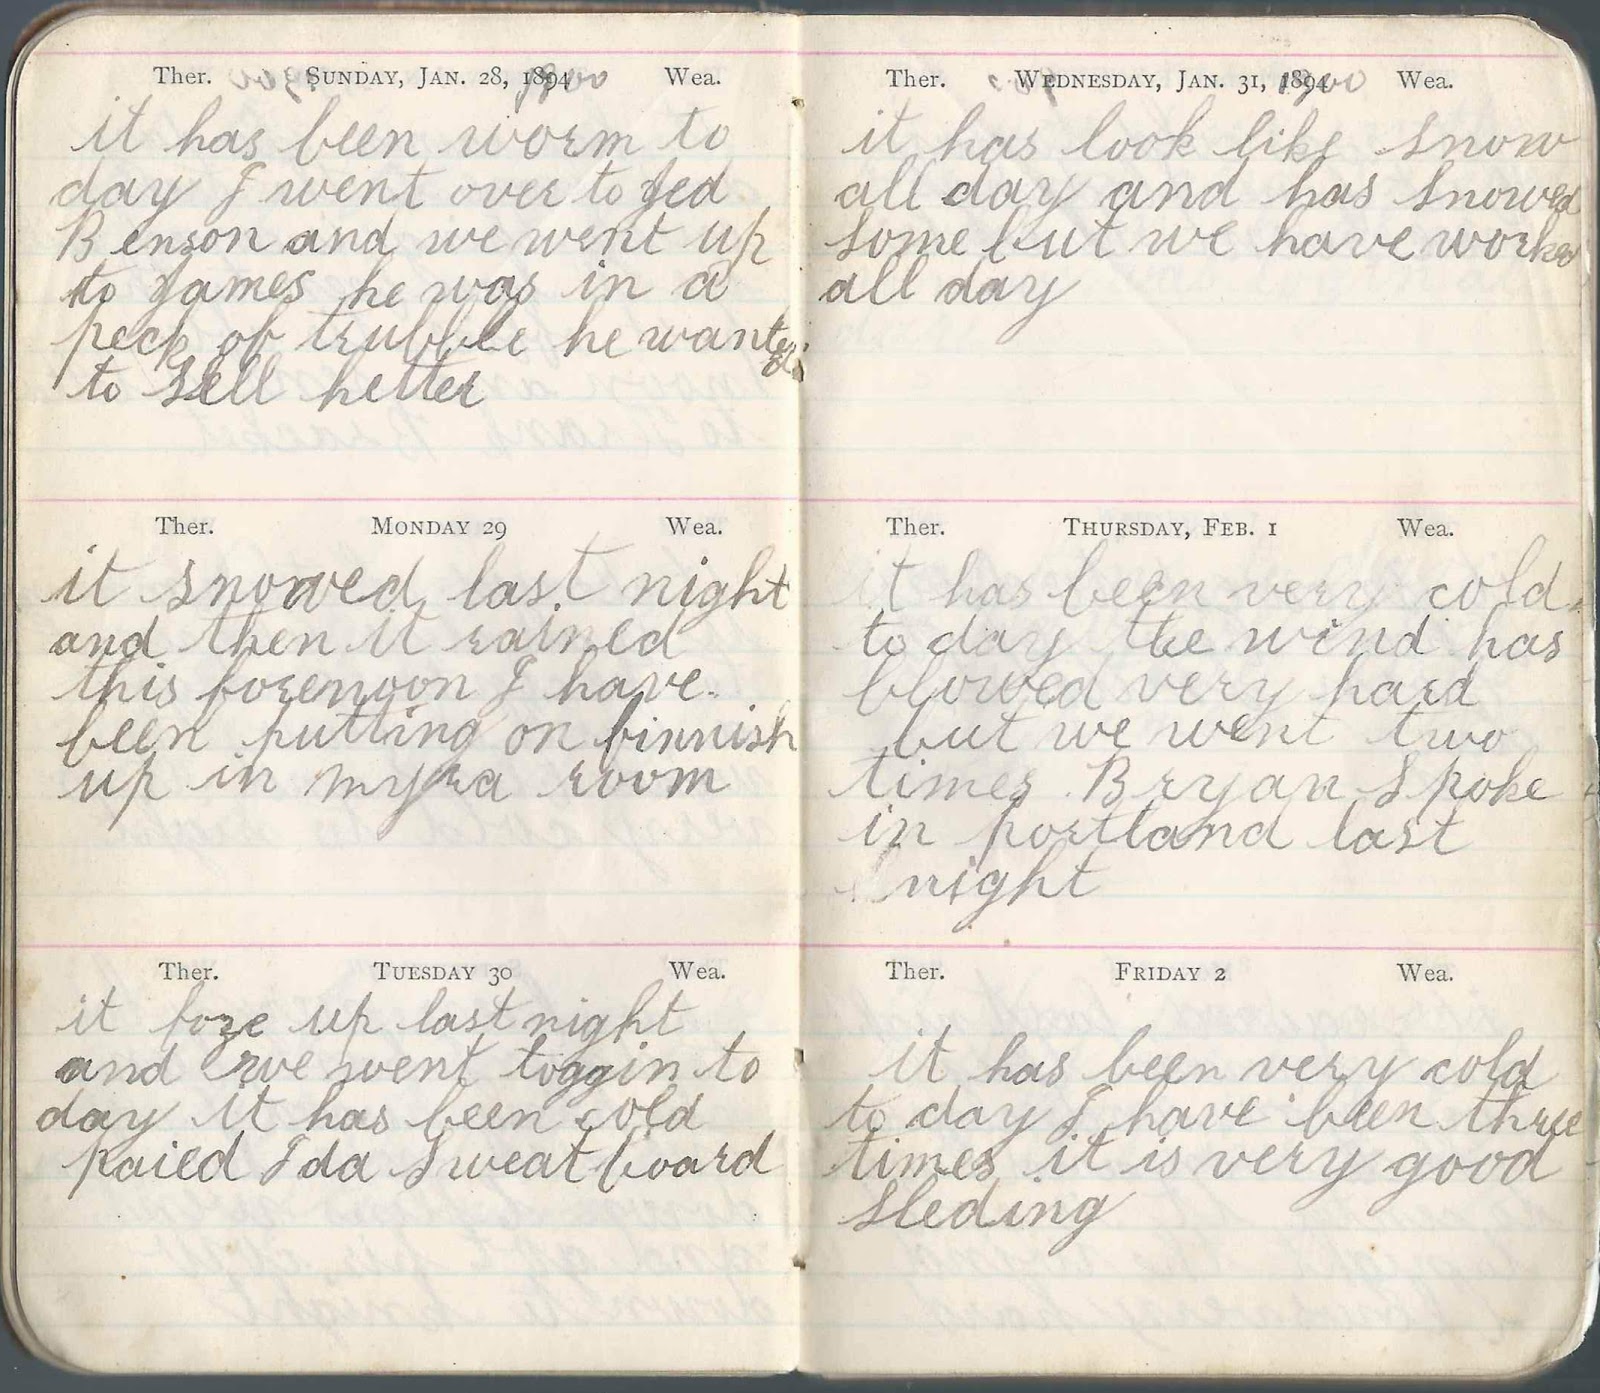 Ther. SUNDAY, JAN. 28, 1894 1900 Wea.
it has been worm to
day I went over to Jed
Benson and we went up
to James he was in a
peck of trubble he wanted
to sell hetter
Ther. MONDAY 29 Wea.
it snowed last night
and then it rained
this forenoon I have
been putting on finnish
up in myra room
Ther. TUESDAY 30 Wea.
it foze up last night
and we went toggin to
day it has been cold
paied Ida Sweat board
Ther. WEDNESDAY, JAN. 31, 1894 1900 Wea.
it has look like snow
all day and has snowed
some but we have worked
all day
Ther. THURSDAY, FEB. 1 Wea.
it has been very cold
to day the wind has
blowed very hard
but we went two
times Bryan spoke
in portland last
night
Ther. FRIDAY 2 Wea.
it has been very cold
to day I have been three
times it is very good
sleding